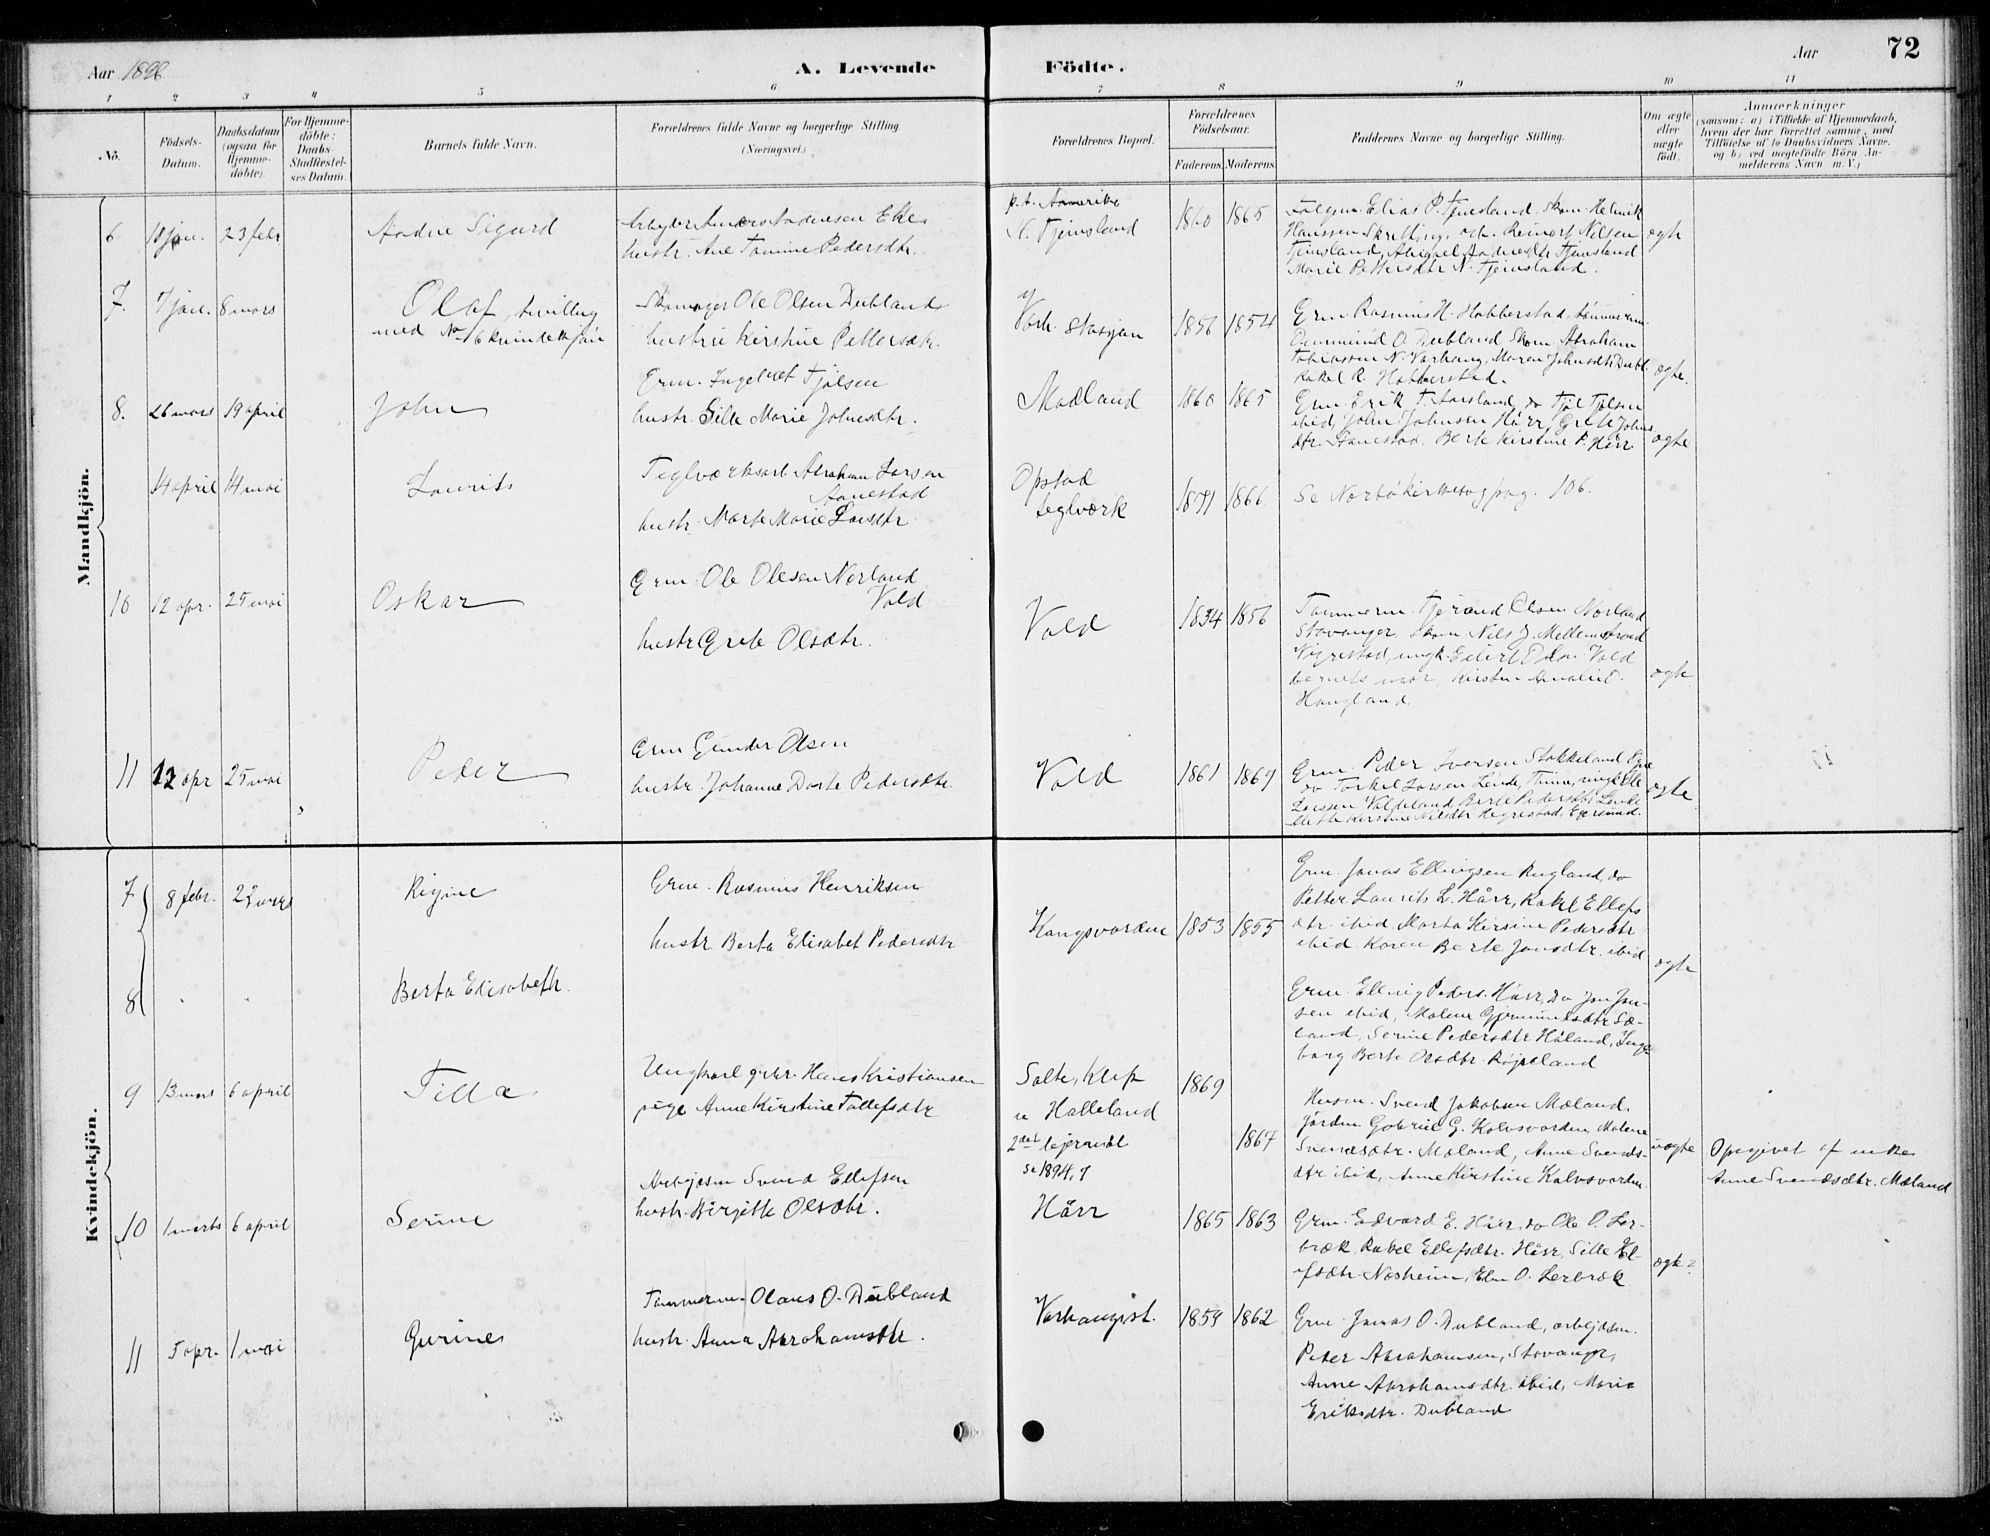 Aar 1896
A. Levende
Födte.
Aar
72
1 2 3 4 5 6 7 8 9 10 11
No.
Födsels-
Datum.
Daabsdatum
(ogsaa for
Hjemme-
döbte).
For Hjemme-
döbte:
Daabs-
Stadfæstel-
ses Datum.
Barnets fulde Navn.
Forældrenes fulde Navne og borgerlige Stilling
(Næringsvei.)
Forældrenes Bopæl.
Forældrenes
Födselsaar.
Faderens.
Moderens.
Faddernes Navne og borgerlige Stilling.
Om ægte
eller
uægte
födt.
Anmærkninger
(saasom: a) i Tilfælde af Hjemmedaab,
hvem der har forrettet samme, med
Tilföielse af to Daabsvidners Navne.
og b) ved uægtefödte Börn An-
melderens Navn m. V.)
Mandkjön.
6 18 jan. 23 febr
Aadne Sigurd
hustr. Ane Tomine Pedersdtr.
p.t. Amerika
N. Tjemsland
1860 1865
Elias P. Tjemsland, Skom. Helmik
Hanssen Skretting, Reinert Nilsen
Tjemsland, Abigael Aadnesdtr Tjemsland
Marie Pettersdtr N. Tjemsland.
ægte
7. 7 jan. 8 mars
Olaf, tvilling
med No 6 kvindekjön
Skomager Ole Olsen Dubland
hustru Kirstine Pettersdtr.
Varh. stasjon
1856 1854
Grm. Rasmus H. Habberstad, tömmerm.
O. Dubland Skom Abraham
Tobiassen N. Varhaug, Maren Johnsdtr Dubl.
Rakel R. Habberstad.
ægte.
8. 26 mars 19 april
John
Grm. Ingebret Tjölsen
hustr. Sille Marie Johnsdtr.
Madland
1860 1865
Grm. Erik T. Aarsland, do Tjöl Tjölsen
ibid, John Johnsen Hårr, Grete Johns
dtr. Aanestad, Berte Kirstine P. Hårr
ægte
14 april 14 mai
Laurits
Teglværksarb. Abraham Larsen
Aanestad
hustr. Marte Marie Larsdtr.
Opstad
teglværk
1866
Se Narbö kirkesog pag. 106.
10 12 apr. 25 mai
Oskar
Grm. Ole Olesen Nærland
Vold
hustr Grete Olsdtr.
Vold
1834 1856
Tömmerm. Tjerand Olsen Nærland
Stavanger, skom Nils J. Mellemstrand
Vigrestad, ungk. Eilert Vold
barnets mor, Kirsten Amalie
Haugland.
ægte
11 12 apr 25 mai
Peder
Grm Gunder Olsen
hustr. Johanne Dorte Pedersdtr.
Vold
1861 1869
Grm. Peder Iversen Stokkeland
do Torkel Larsen Lende, Thime, ungk Ole
Larssen Valheland, Berte Pedersdtr Lende
Kirstine Nilsdtr Hegrestad, Egersund.
ægte
Kvindekjön.
7 8 febr. 22 mars
Regine
Grm. Rasmus Henriksen
hustr. Berta Elisabet Pedersdtr
Kongsvarden
1853 1855
Grm. Jonas Ellingsen Rugland, do
Petter Laurits L. Hårr, Rakel Ellefs
dtr. ibid Marta Kirsine Pedersdtr
ibid Karen Berte Jansdtr. ibid
ægte
8
Berta Elisabeth.
Grm. Elling Peders. Hårr, do Jon Jon-
sen ibid, Malene Gjermundsdtr Sæ-
land, Serine Pedersdtr Håland, Inge-
borg Berte Olsdtr. Röiseland
9 13 mars 6 april
Tilla
Ungkarl grbr. Hans Kristiansen
pige Anne Kirstine Tollefsdtr
Salte, Klep
u Halleland
2det lejermål
se 1894, 7
1869
1867
Husm. Svend Jakobsen Mæland,
Gabriel G. Kalvsvarden, Malene
Svendsdtr. Mæland, Anne Svends-
dtr ibid, Anne Kirstine Kalvsvarden
uægte
Opgivet af enke
Anne Svendsdtr. Mæland
10 1 marts 6 april
Serine
Arbejdsm Svend Ellefsen
hustr. Birgitte Olsdtr.
Hårr
1865 1863
Grm. Edvard E. Hårr, do Ole O. Ler-
bræk, Rakel Ellefsdtr. Hårr, Sille El-
efsdtr. Næsheim, Elen O. Lerbræk
ægte
11 5 apr. 1 mai
Gurine
Tömmerm. Olaus O. Dubland
hustr. Anna Abrahamsdtr.
Varhaugst.
1859 1862
Grm. Jonas O. Dubland, arbejdsm.
Peter Abrahamsen, Stavanger,
Anne Abrahamsdtr. ibid, Maria
Eriksdtr. Dubland